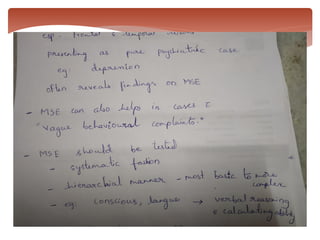 esp. frontal & temporal
presenting as pure psychiatric case
eg: depression
often reveals findings on MSE
- MSE can also helps in cases c̄
"vague behavioural complaints."
- MSE should be tested
- systematic fashion
- hierarchial manner - most basic to more complex
- eg. conscious, langue → verbal reasoning
& calculating ability